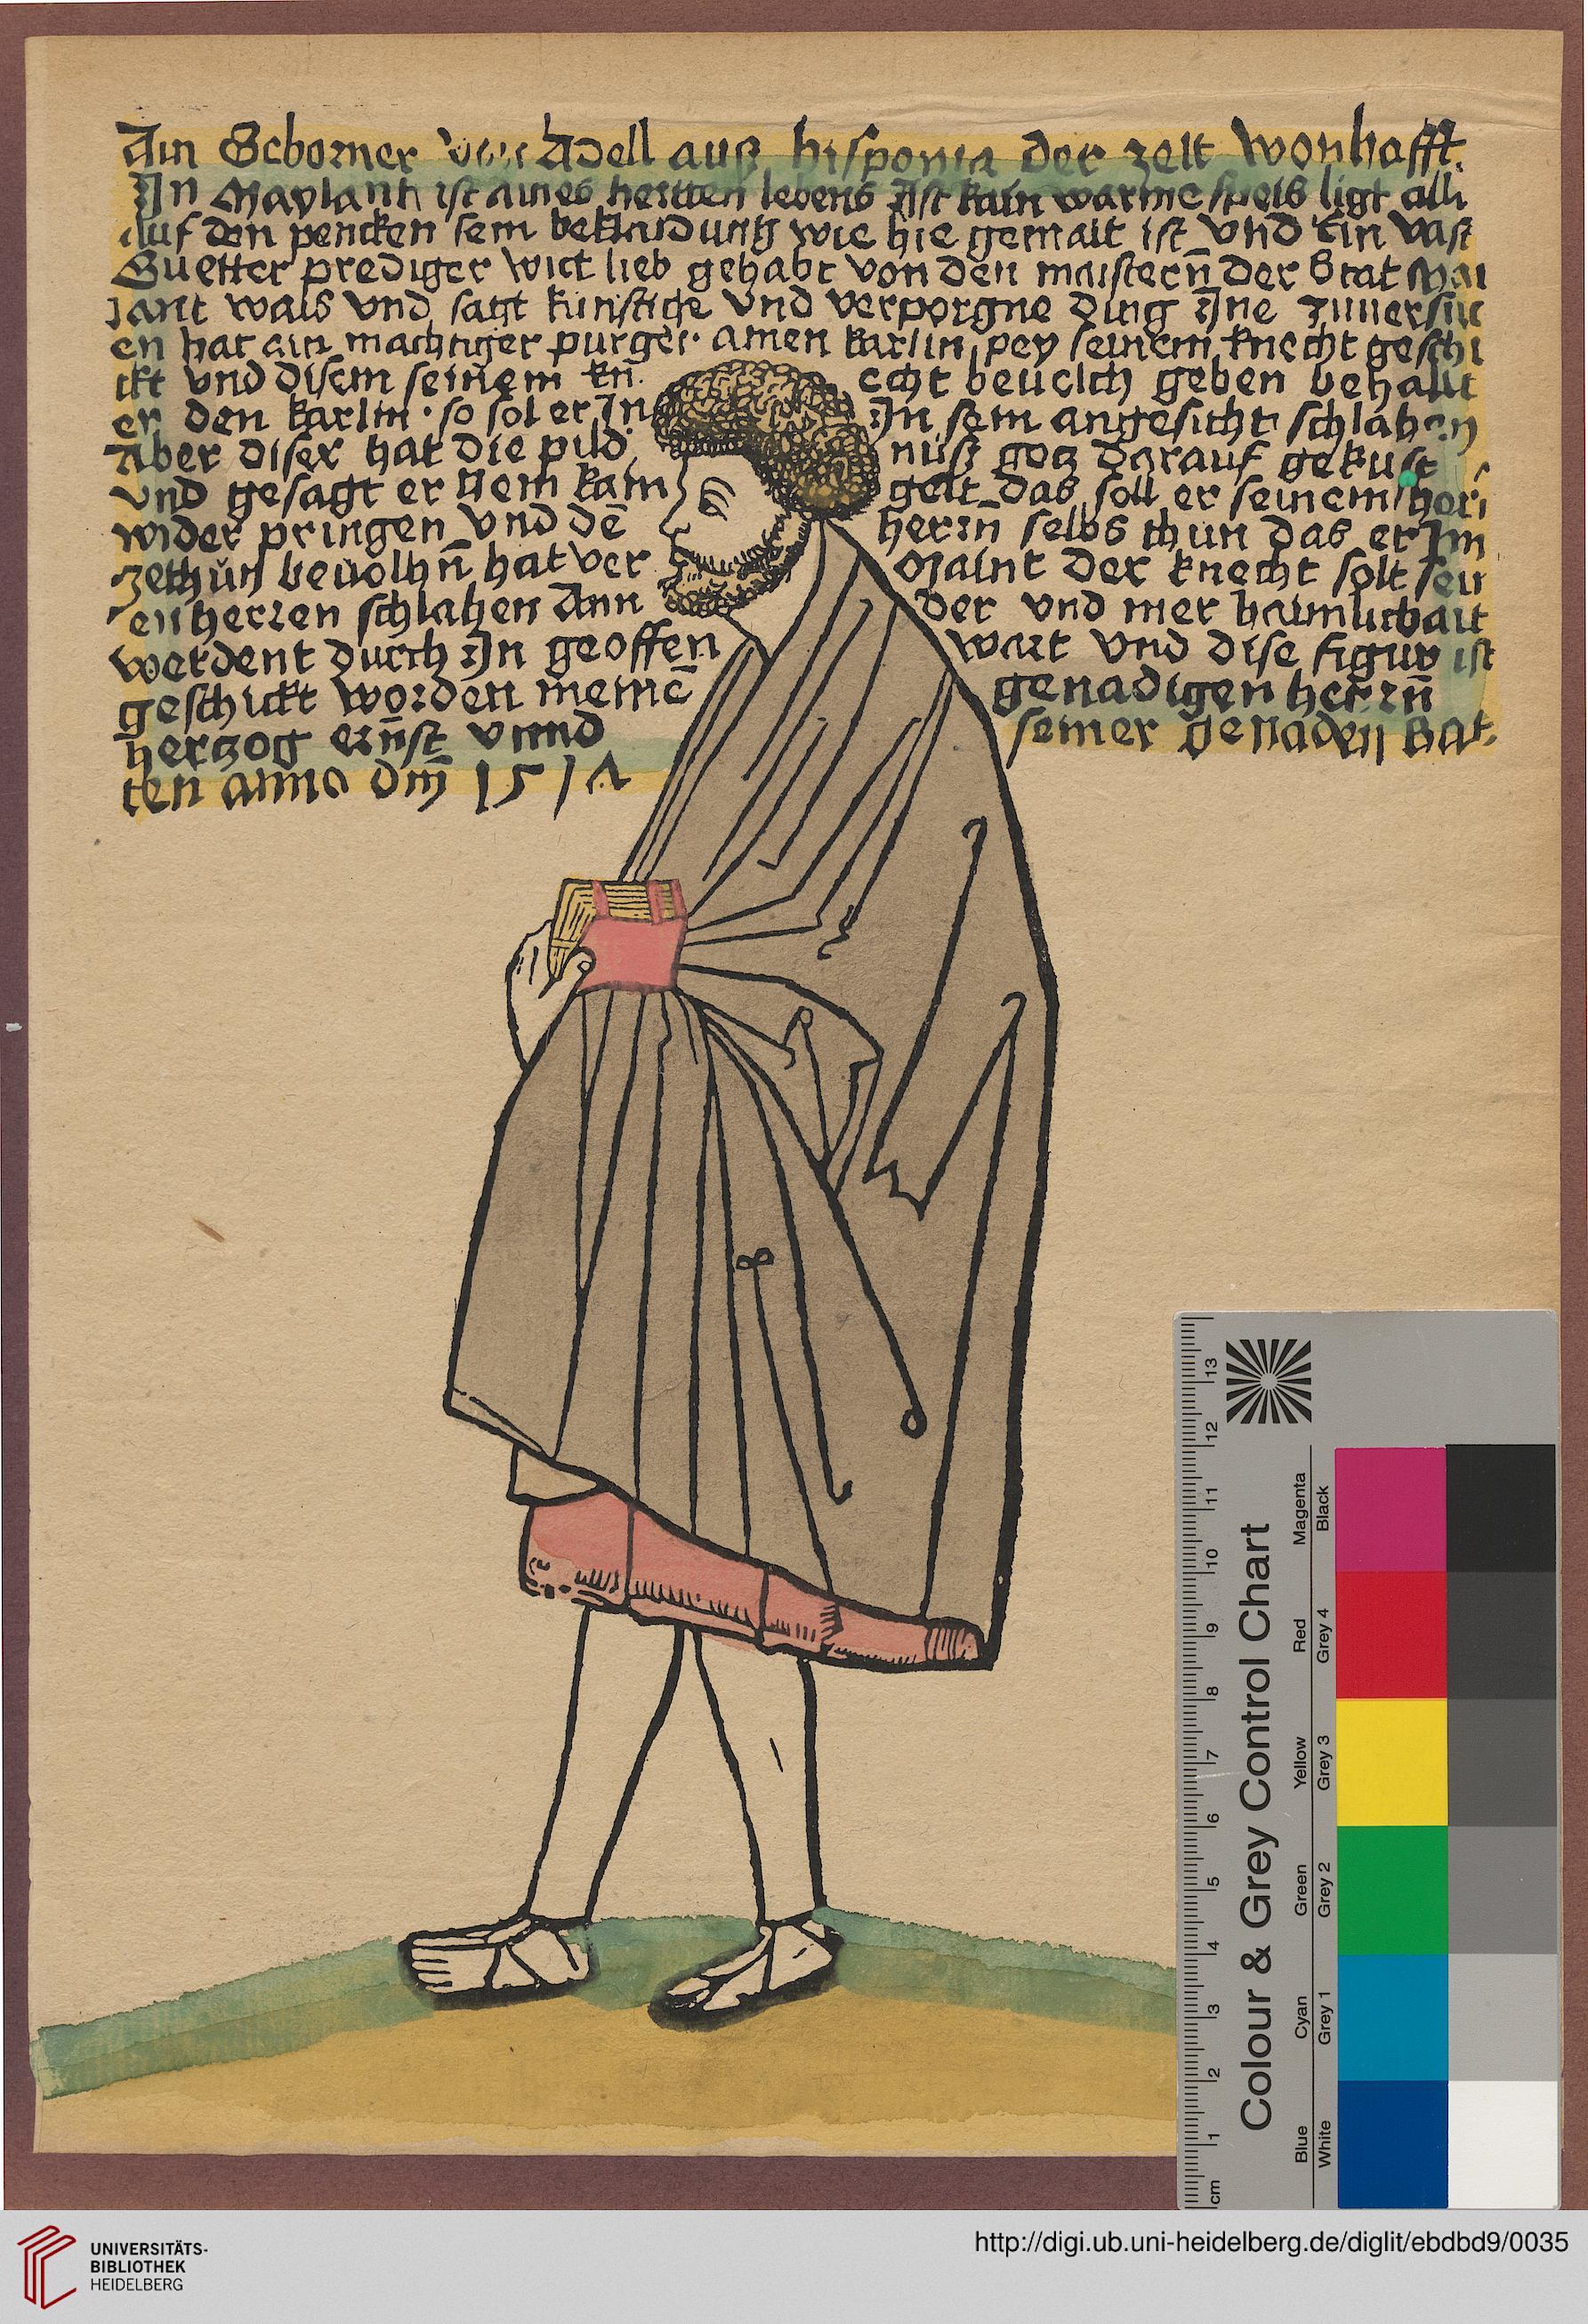 Ain Geborner von Adell auß hisponia der zeit wonhafft.
In Maylant ist aines hertten lebens Ist kain warme speis ligt all
auf den pencken sein beklaidung wie hie gemalt ist vnd Ein vast
Guetter prediger wirt lieb gehabt von den maistern̄ der Stat Mai
lant wais vnd sagt kunftige vnd verporgne ding Ine zuuersuc
en hat ain machtiger purger amen karlin pey seinem knecht geschi
ckt vnd disem seinem kn̄echt beuelch geben behallt
er den karlin · so sol er In In sein angesicht schlahen
Aber diser hat die pildnüß gotz darauf gekust
vnd gesagt er nem kain gelt das soll er seinem
wider pringen vnd dē herrn̄ selbs thun das er Im
zethun beuolhn̄ hat ver Maint der knecht solt sein
en herren schlahen Ann der vnd mer haimlichait
werdent durch In geoffen wart vnd dise figur ist
geschickt worden meinē genadigen herrn̄
hertzog ern̄st vnnd seiner genaden Rat
ten anno dm̄ 151
13
12
11
10
9
8
7
6
5
4
3
2
1
cm
Colour & Grey Control Chart
Magenta
Red
Yellow
Green
Cyan
Blue
Black
Grey 4
Grey 3
Grey 2
Grey 1
White
UNIVERSITÄTS-
BIBLIOTHEK
HEIDELBERG
http://digi.ub.uni-heidelberg.de/diglit/ebdbd9/0035